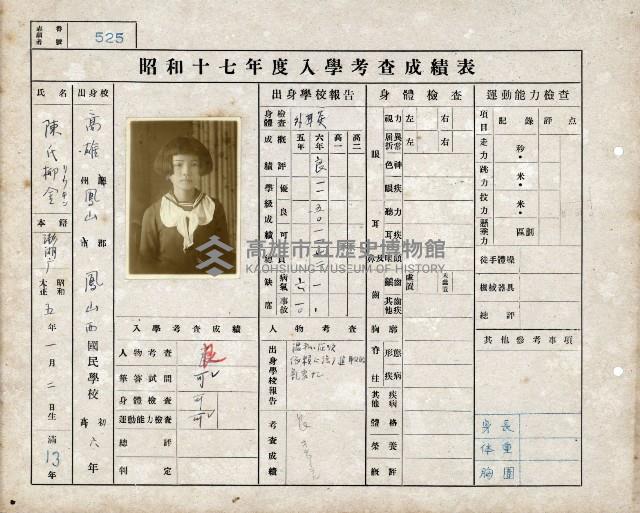 志願者番號
525
昭和十七年度入學考查成績表
氏名
陳氏柳金
本籍
澎湖
昭和
大正
五年一月二日生
滿13年
出身校
高雄州
鳳山郡
鳳山西國民學校
初
高
六年
入學考查成績
人物考查 良
筆答試問 可
身體檢查 可
運動能力檢查 可
總評
判定
出身學校報告
身體檢查
成績概評
五年 六年 高一 高二
良
學級成績
優
良
可
總員
缺席
病氣
事故
人物考查
出身學校報告
考查成績
良
身體檢查
視力 左 右
屈折異常 左 右
眼
色神
眼疾
聽力
耳
耳疾
鼻及咽頭
齲齒
處置
未處置
齒
其他齒疾
胸廓
脊柱
形態
疾病
其他疾病
體格
榮養
概評
運動能力檢查
項目 記錄 評点
走力 秒·
跳力 米·
投力 米·
懸垂力
區劃
徒手體操
機械器具
總評
其他參考事項
身長
体重
胸圍
高雄市立歷史博物館
KAOHSIUNG MUSEUM OF HISTORY